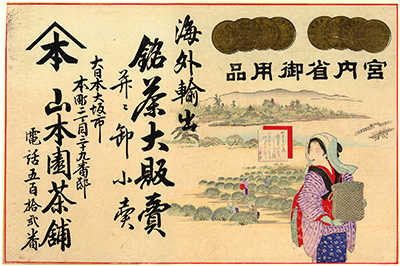 宮内省御用品
海外輸出
銘茶大販賣
并ニ卸小賣
大日本大坂市
本町 丁目 十九番邸
本
山本園茶舗
電話五百拾弐番